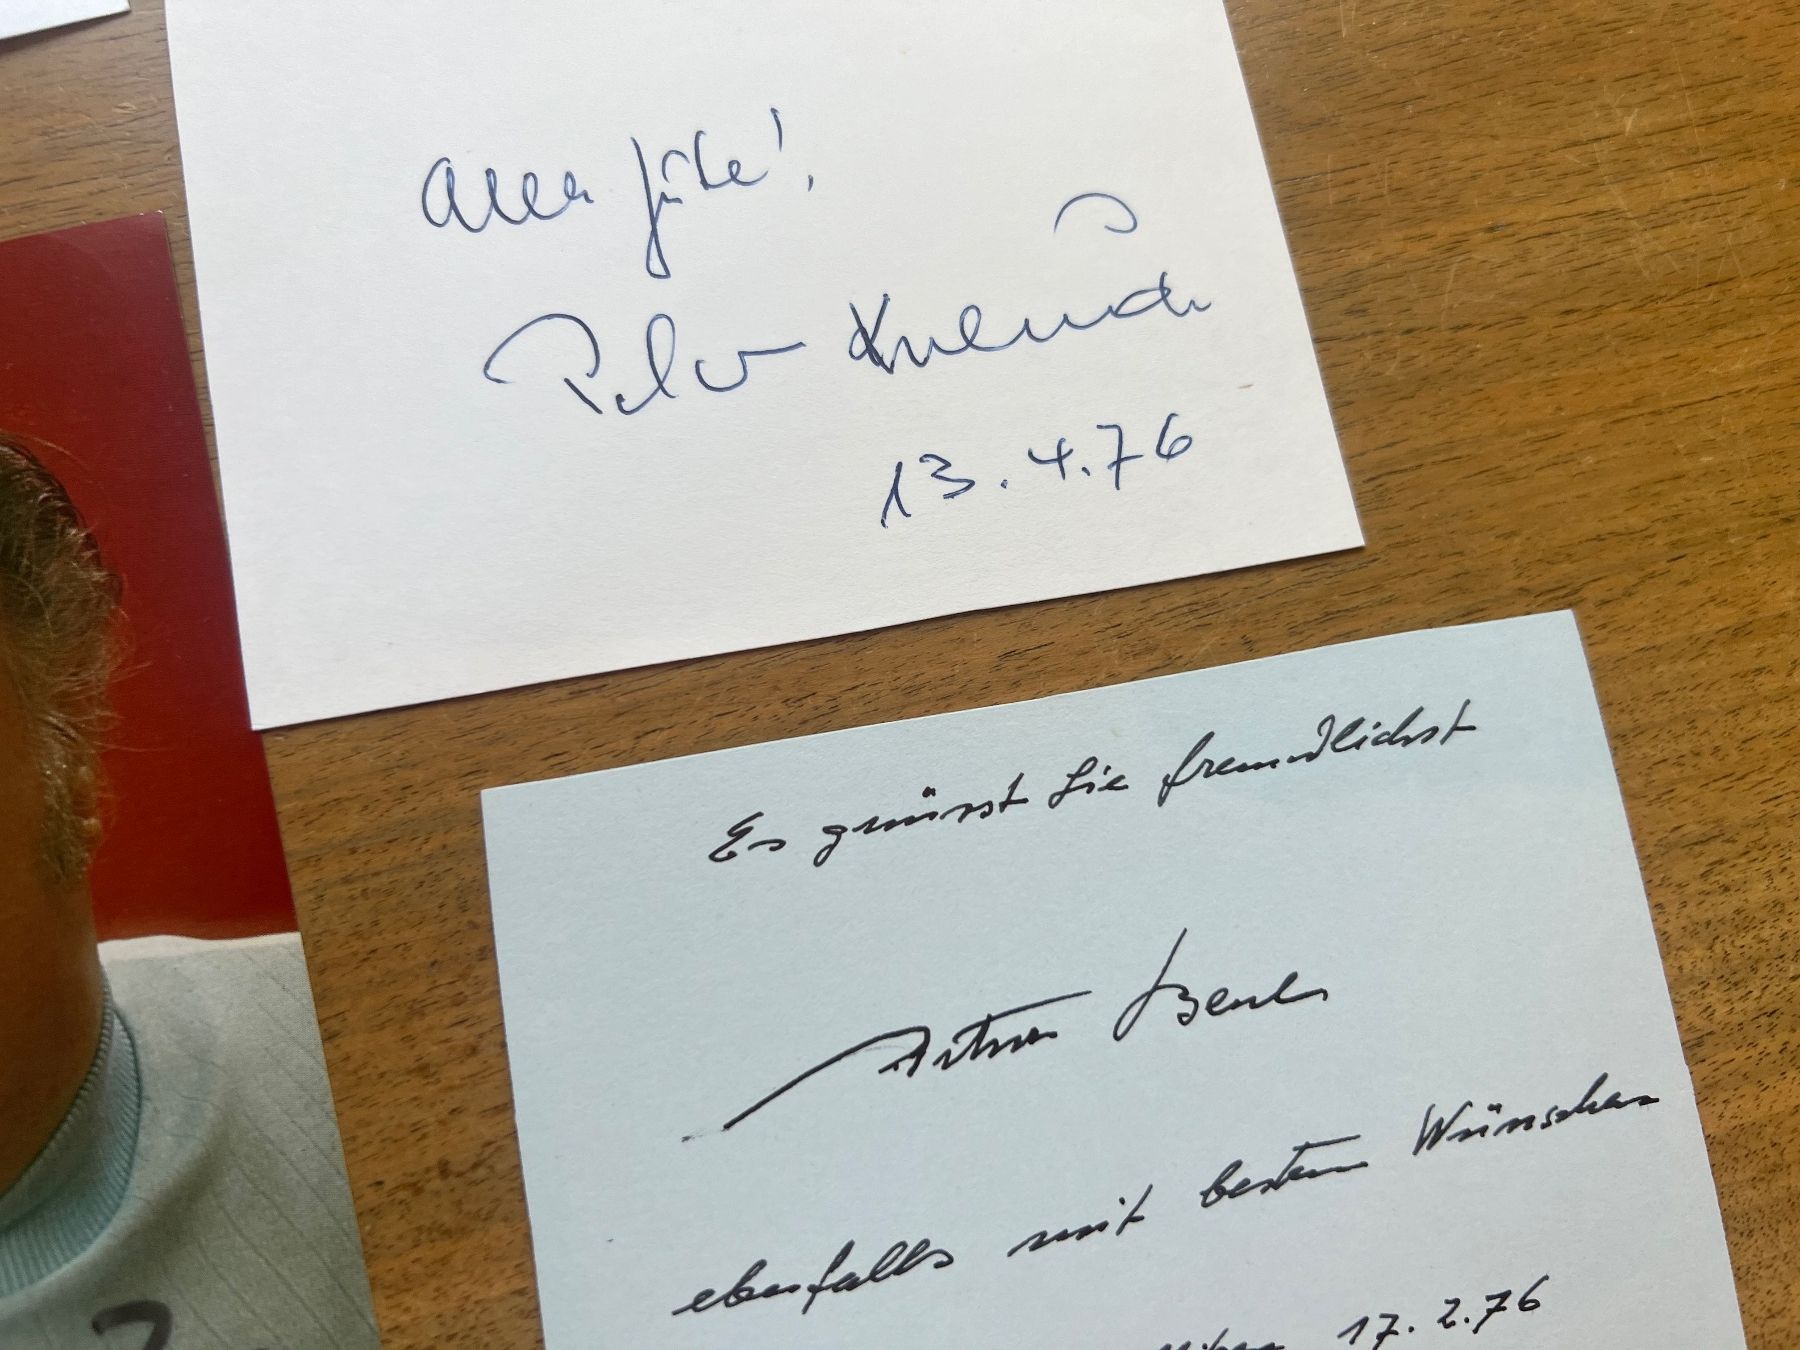 Alles Gute!
Peter
13.4.76
Es grüsst Sie freundlichst
Arthur
ebenfalls mit besten Wünschen
17.2.76